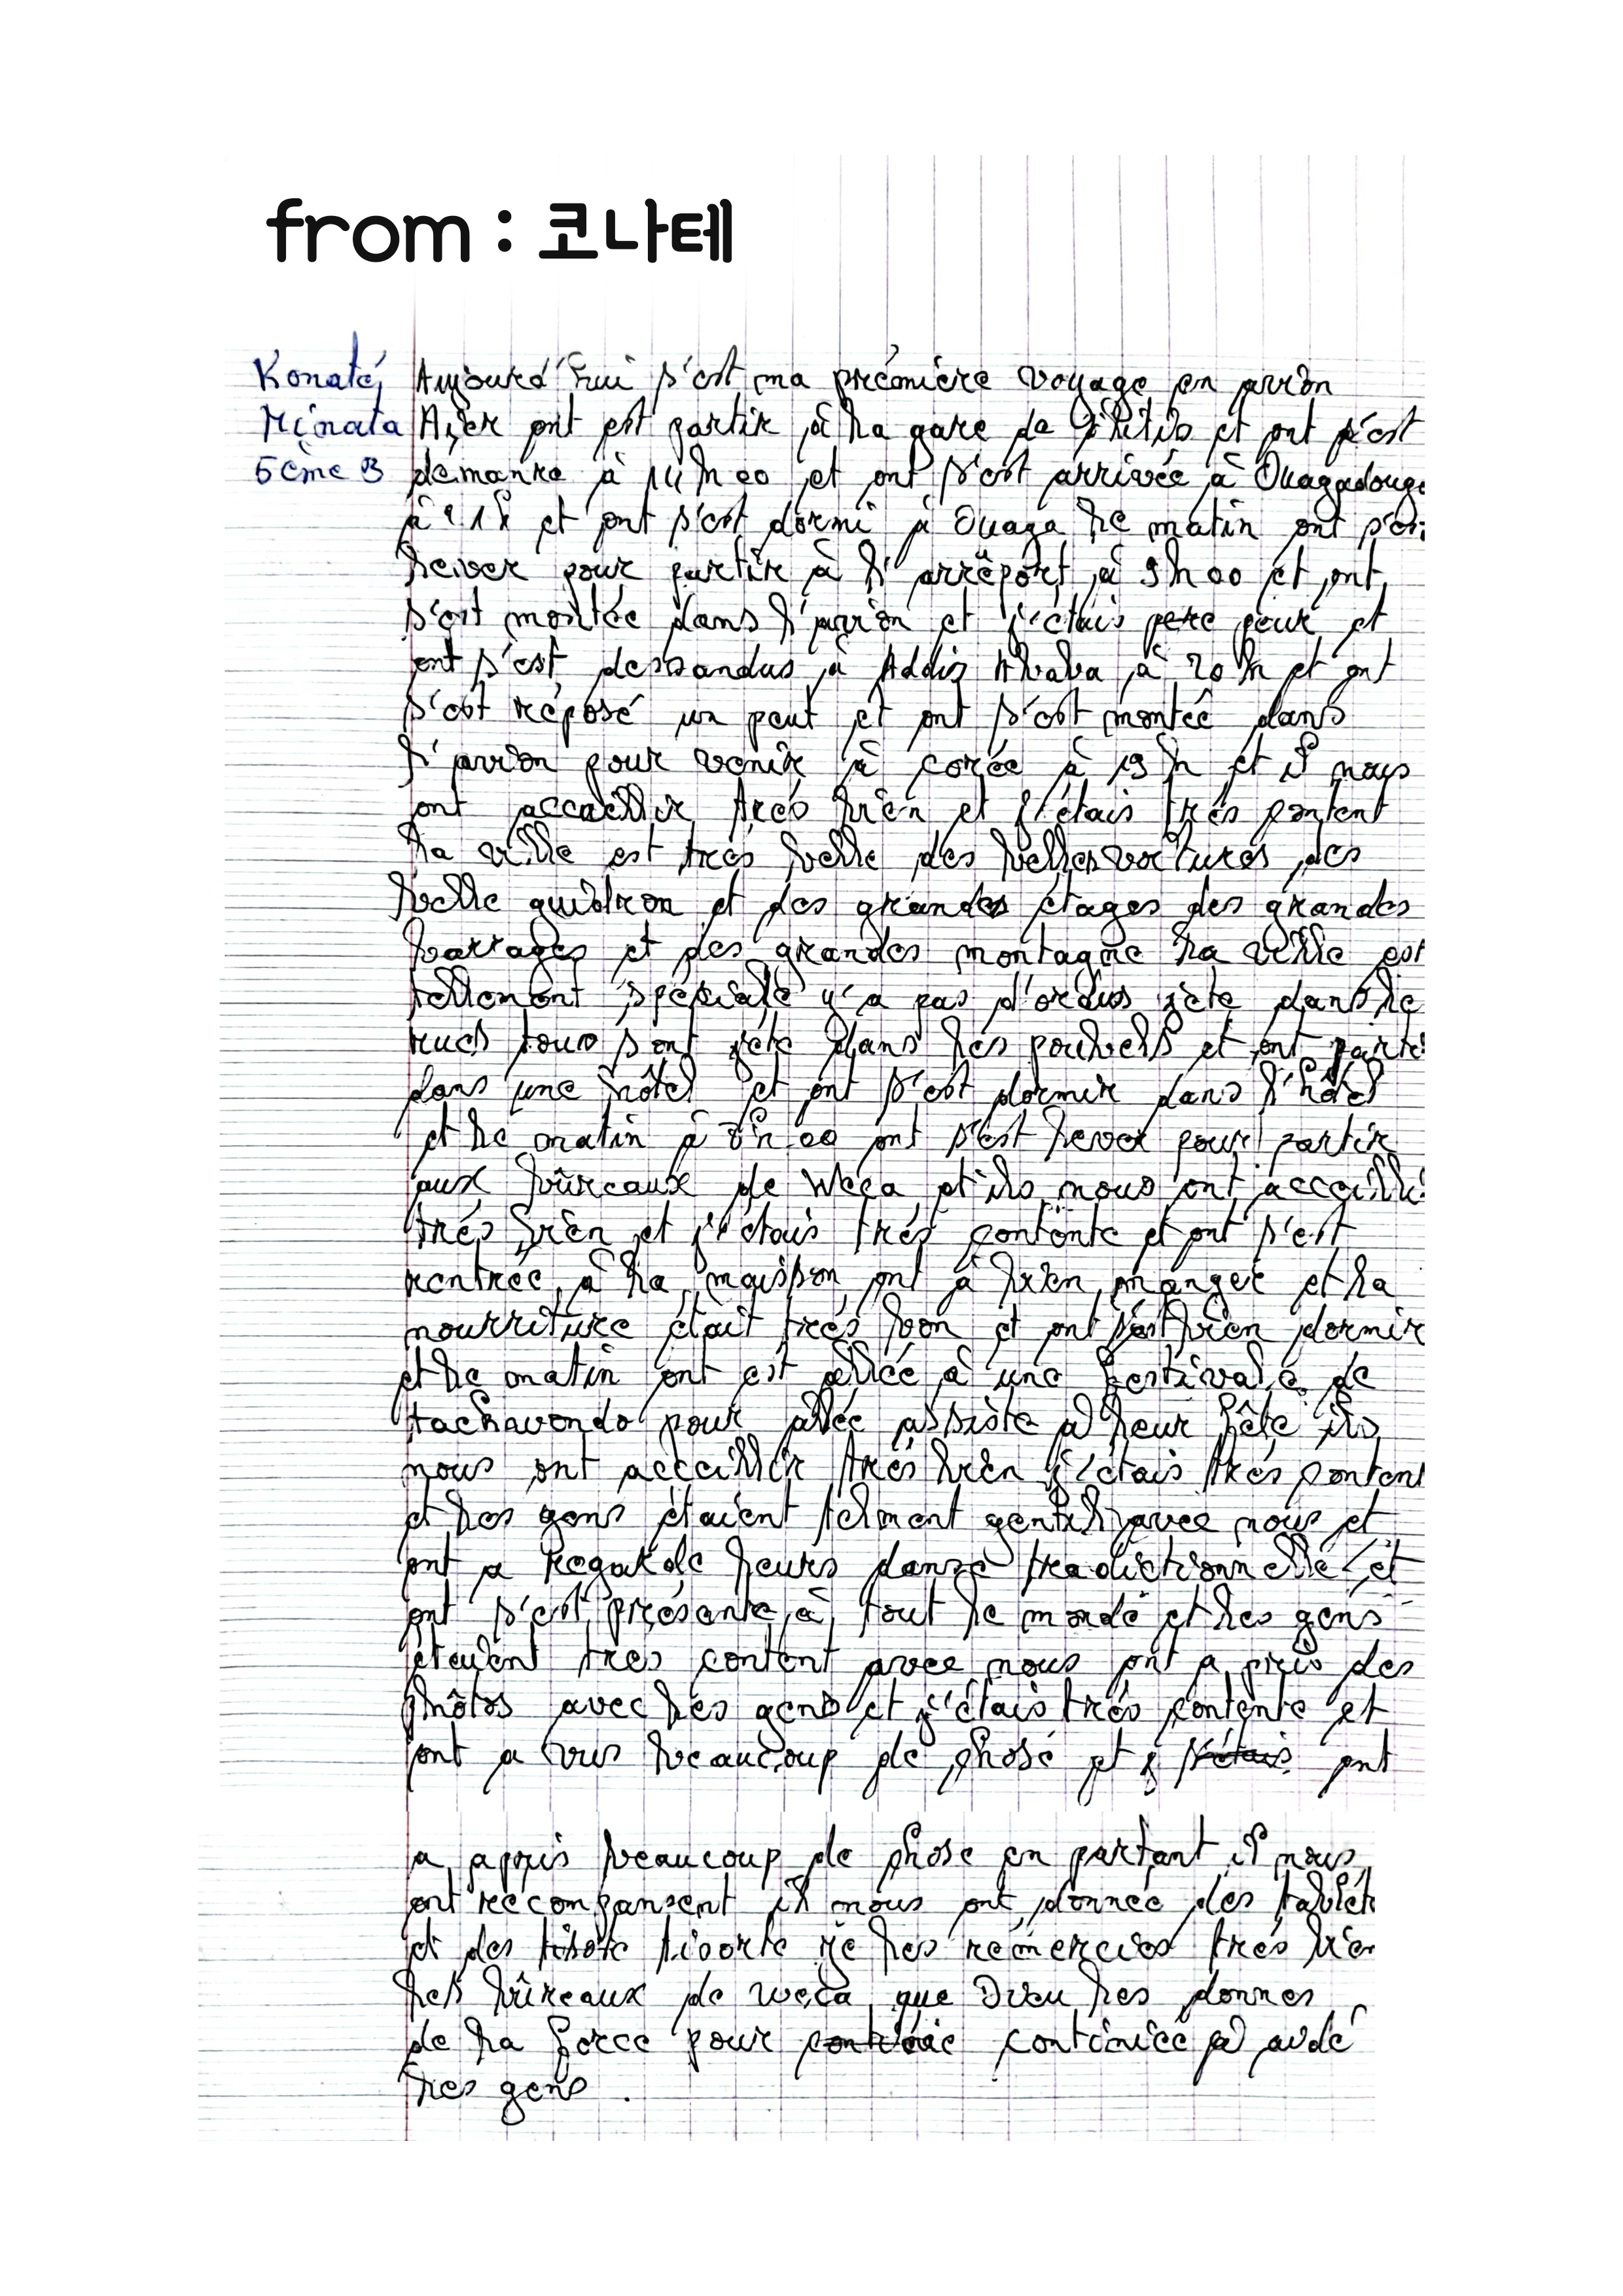 from : 코나테
Konaté Aujourd'hui s'est ma prémière voyage en avion
Minata Hier ont est partir à la gare de et ont s'est
5ème B demanre à 14h00 et ont s'est arrivée à Ouagadougo
à 21h et ont s'est dormi à Ouaga le matin ont s'es
lever pour partir à l'arréport à 9h00 et ont
s'est montée dans l'avion et j'étais pere peur et
ont s'est dessandus à Addis Ababa à 20h et ont
s'est réposé un peut et ont s'est montée dans
l'avion pour venir à corée à 19h et il nous
ont accaillir trés bien et j'étais trés content
la ville est trés belle des belles voitures des
belle guidron et des grandes étages des grandes
barrages et des grandes montagne la ville est
tellement spéciale y'a pas d'ordus jéte dans le
rues tous sont jéte dans les poubels et ont parti
dans une hôtel et ont s'est dormir dans l'hôtel
et le matin à 8h00 ont s'est lever pour partir
aux bûreaux de Weca et ils nous ont accailli
trés bien et j'étais trés contente et ont s'est
rentrée à la maisson ont à bien manger et la
nourriture était trés bon et ont s'est bien dormir
et le matin ont est allée à une festivale de
tachavondo pour allée assiste a leur fête ils
nous ont accaillir trés bien j'étais trés content
et les gens étaient telment gentil avec nous et
ont a regarde leurs danse tradictionnelle et
ont s'est présente à tout le monde et les gens
étaient tres content avec nous ont a pris des
phôtos avec les gens et j'étais trés contente et
ont a vus beaucoup de chose et j s'étais ont
a appris beaucoup de chose en partant il nous
ont recompansent il nous ont donnée des tablét
et des tisote tisorte je les rémercies trés bien
les bûreaux de weca que Dieu les donnes
de la force pour continuée a aidé
les gens .